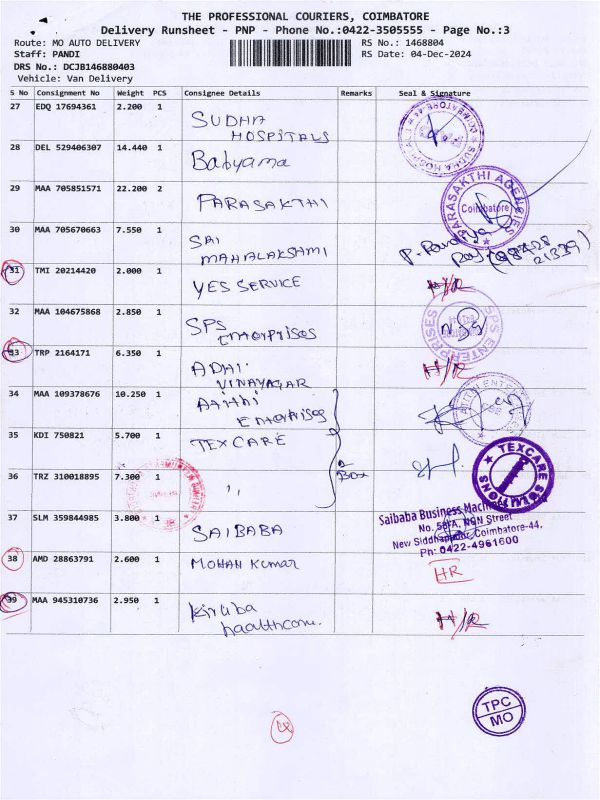 THE PROFESSIONAL COURIERS, COIMBATORE
Delivery Runsheet - PNP - Phone No.:0422-3505555 - Page No.:3
Route: MO AUTO DELIVERY RS No.: 1468804
Staff: PANDI RS Date: 04-Dec-2024
DRS No.: DCJB146880403
Vehicle: Van Delivery
S No Consignment No Weight PCS Consignee Details Remarks Seal & Signature
27 EDQ 17694361 2.200 1 SUDHA
HOSPITALS
28 DEL 529406307 14.440 1 Babyama
29 MAA 705851571 22.200 2 PARASAKTHI
PARASAKTHI AGENCIES
Coimbatore
30 MAA 705670663 7.550 1 SAI
MAHALAKSHMI
31 TMI 20214420 2.000 1 YES SERVICE H/R
32 MAA 104675868 2.850 1 SPS
Enterprises
SPS ENTERPRISES
33 TRP 2164171 6.350 1 ADHI
VINAYAGAR H/R
34 MAA 109378676 10.250 1 Arithi
Enterprises
35 KDI 750821 5.700 1 TEXCARE
TEXCARE SOLUTIONS
36 TRZ 310018895 7.300 1 ,, 2
BOX
37 SLM 359844985 3.800 1 SAIBABA
Saibaba Business Machines
No. 587A, NGN Street
New Siddhapudur, Coimbatore-44.
Ph: 0422-4961600
38 AMD 28863791 2.600 1 MOHAN Kumar HR
39 MAA 945310736 2.950 1 Kiruba
haalthcom. H/R
TPC
MO